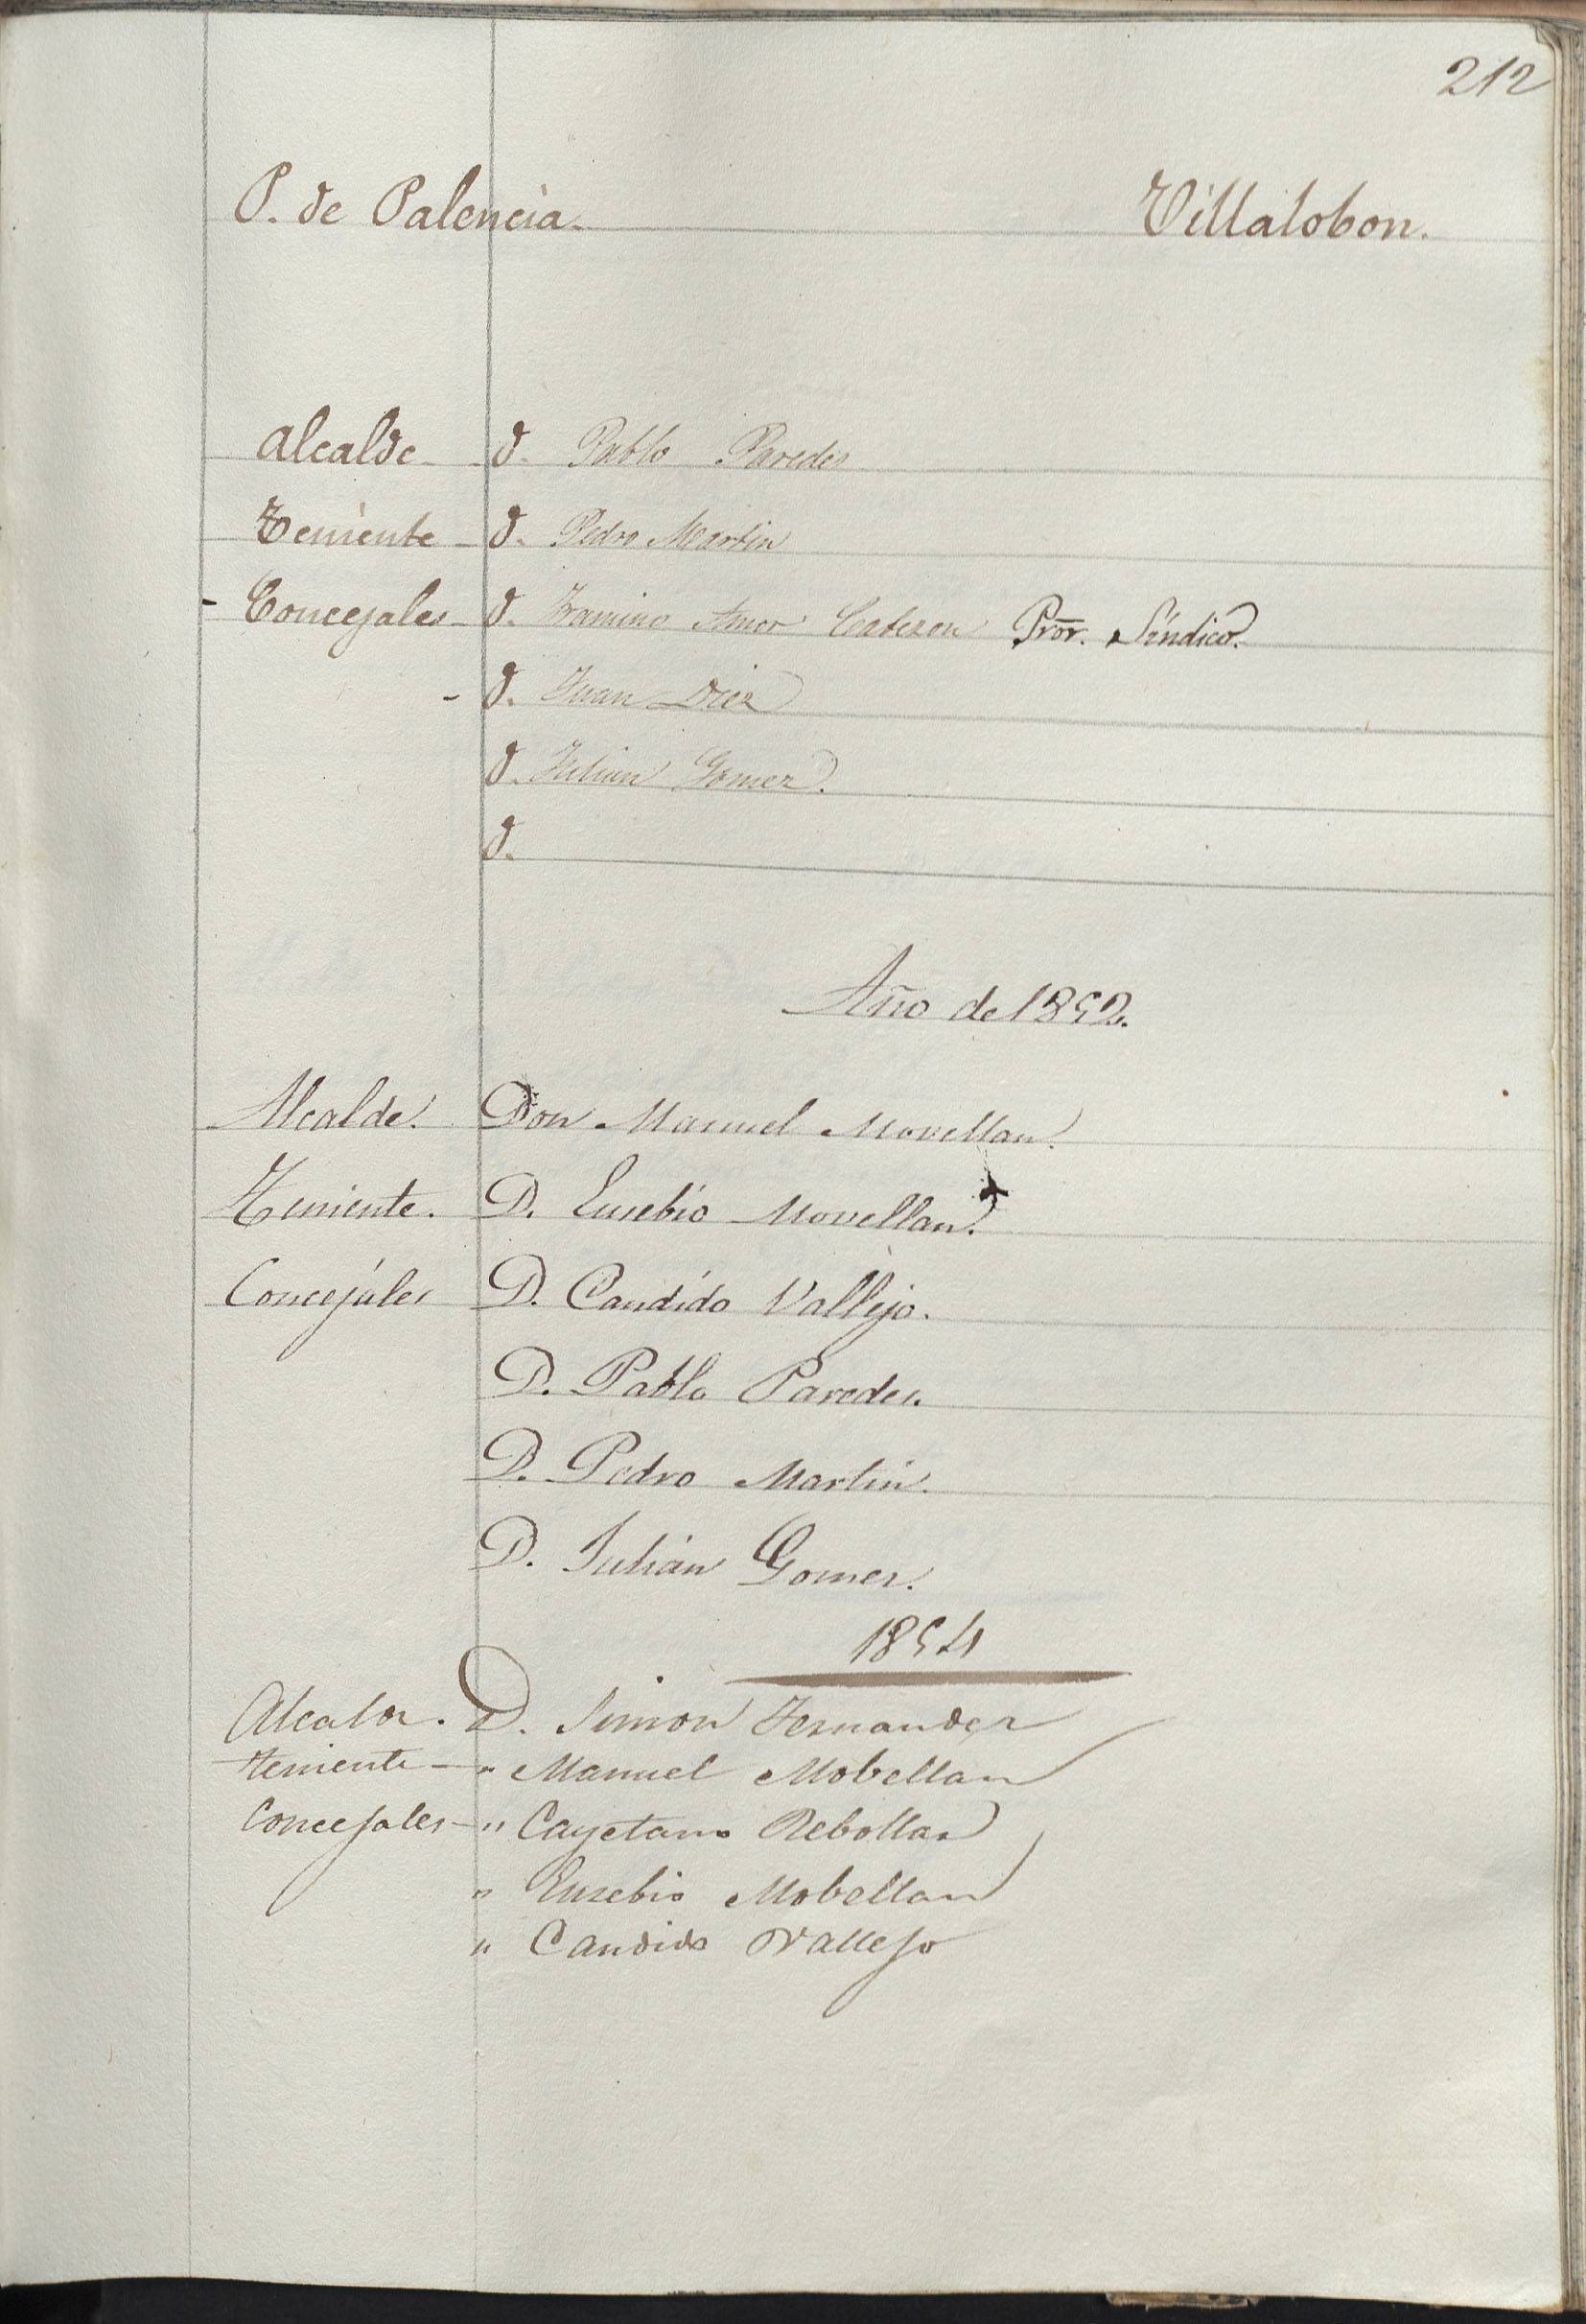 212
P. de Palencia. Villalobon.
Alcalde d. Pablo Paredes
Teniente d. Pedro Martin
Concejales d. Amor Pror. Síndico.
d. Juan Diez
d. Julian Gomez.
d.
Año de 1852.
Alcalde. Don Manuel Movellan.
Teniente. D. Eusebio Movellan.
Concejáles D. Candído Vallejo.
D. Pablo Paredes.
D. Pedro Martin.
D. Julián Gomez.
1854
Alcalde. D. Simon Fernandez
teniente - " Manuel Mobellan
Concejales - " Cayetano Rebollar
" Eusebio Mobellan
" Candido Vallejo